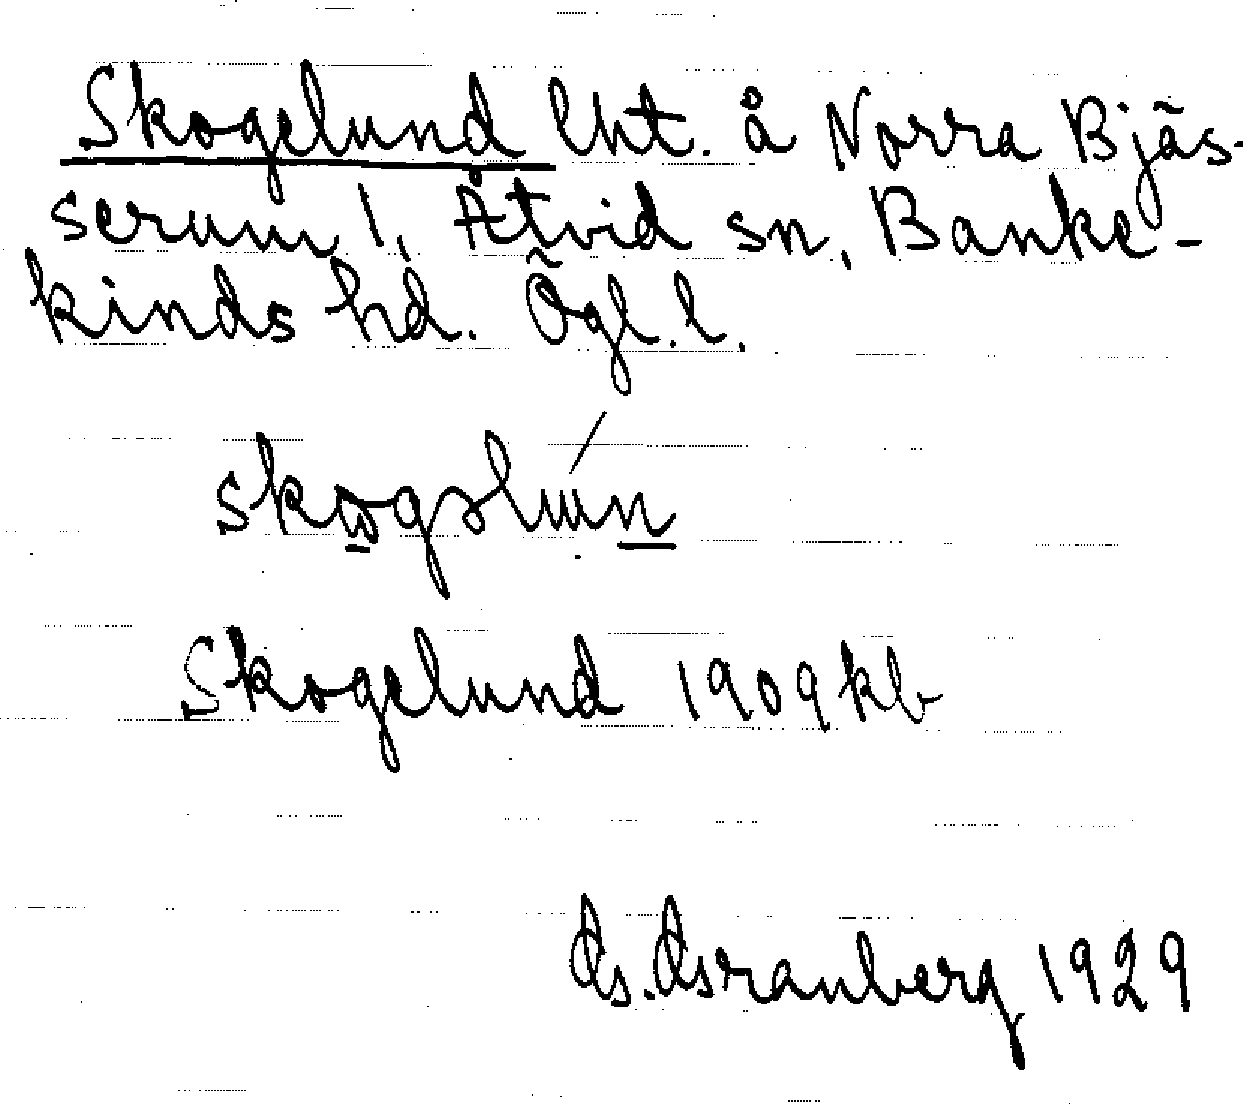 Skogelund lht. å Norra Bjäs-
serum 1, Åtvid sn, Banke-
kinds hd. Ögl. l.
Skogelund 1909 kb
G. Granberg 1929